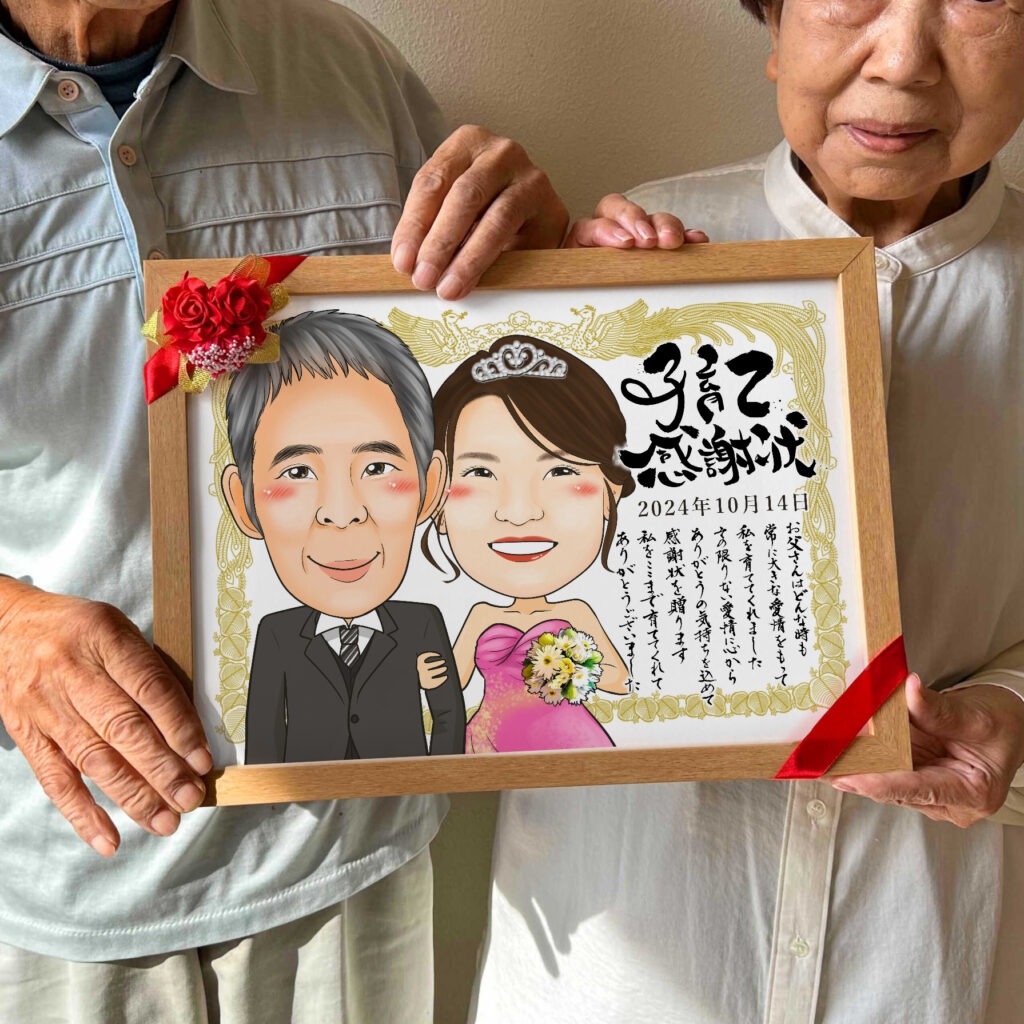 子育て
感謝状
2024年10月14日
お父さんはどんな時も
常に大きな愛情をもって
私を育ててくれました
その限りない愛情に心から
ありがとうの気持ちを込めて
感謝状を贈ります
私をここまで育ててくれて
ありがとうございました